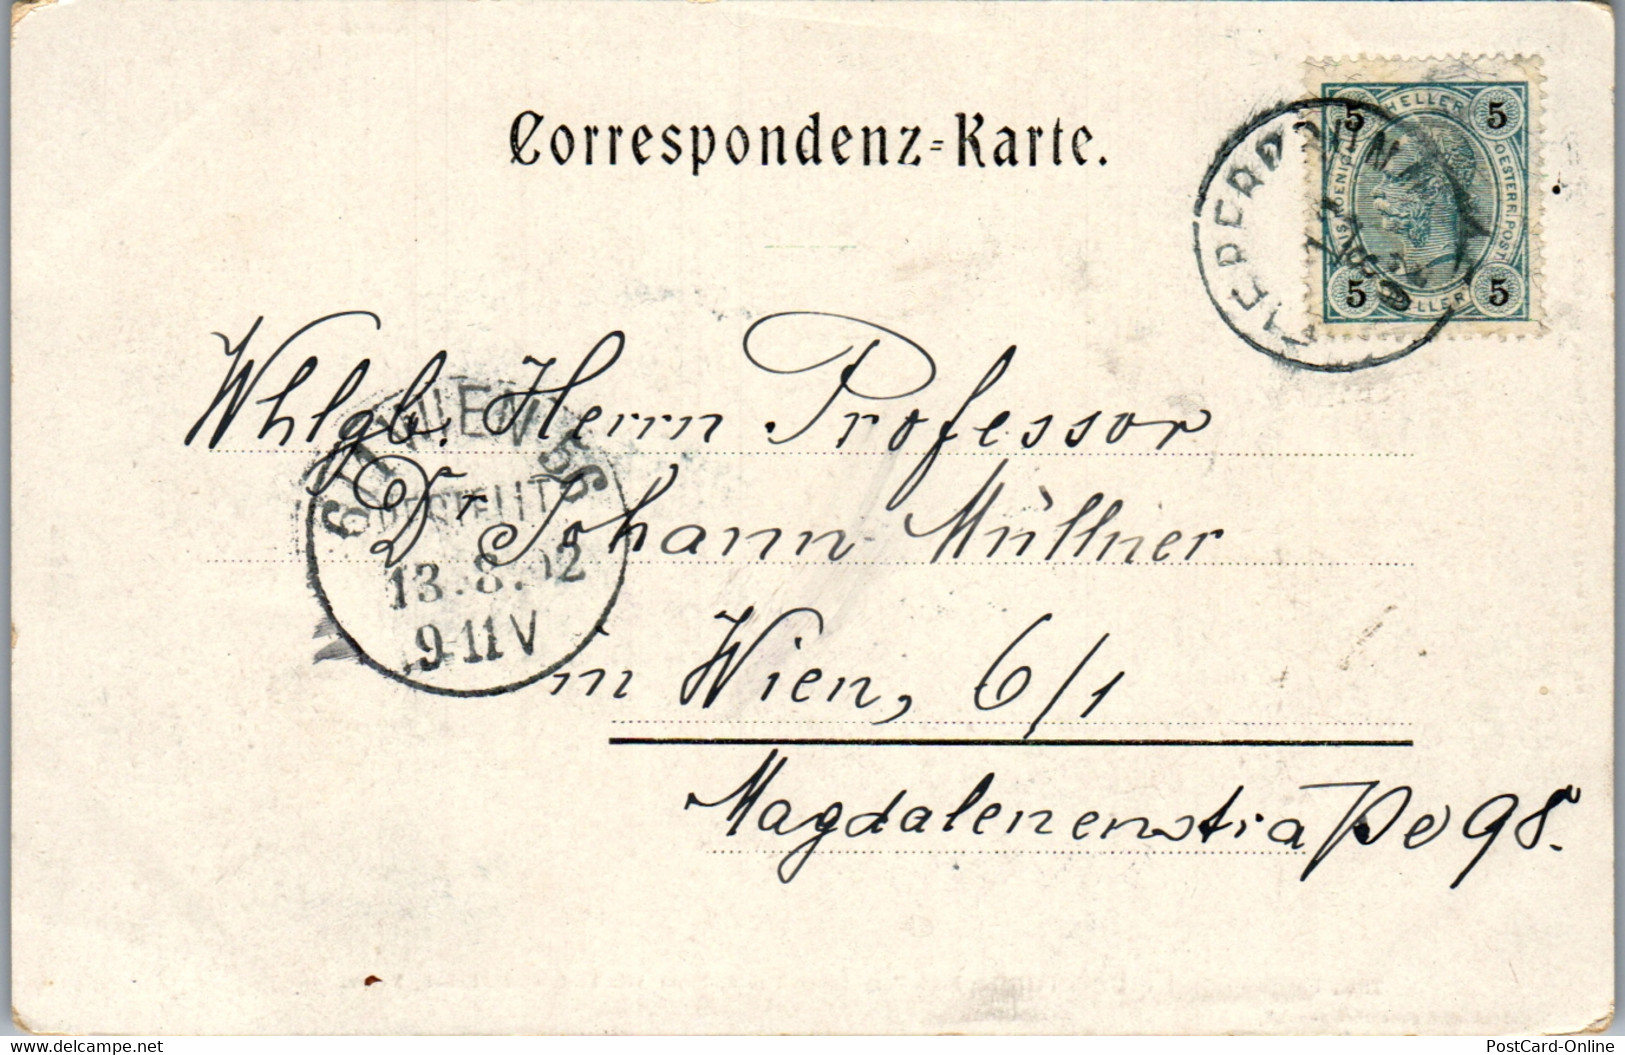 Correspondenz-Karte.
5 HELLER 5
KAIS. KOENIGL. OESTERR. POST
5 HELLER 5
Whlgb. Herrn Professor
Dr Johann Müllner
in Wien, 6/1
Magdalenenstraße 98.
6/1 WIEN 56
BESTELLT
13.8.02
9-11V
delcampe.net
PostCard-Online